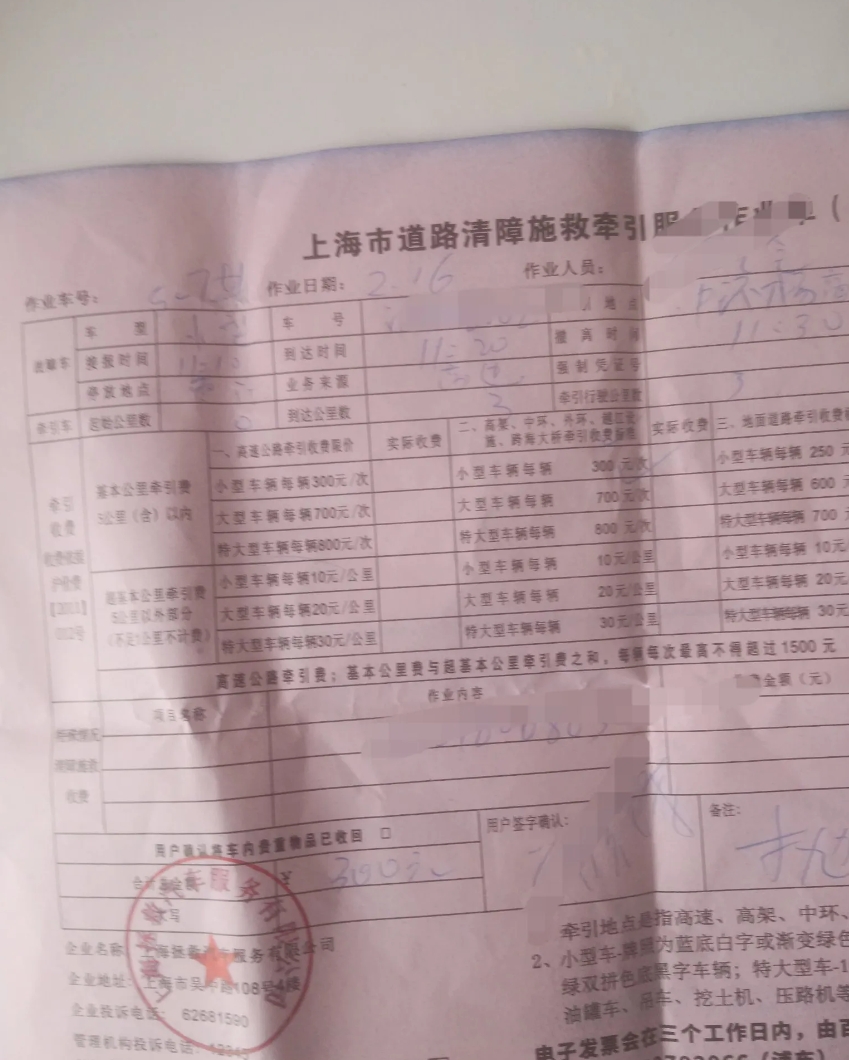 上海市道路清障施救牵引服 作业单（
作业车号： 作业日期：2.16 作业人员：
车型 小型 车号 地点
接报时间 11:10 到达时间 11:20 撤离时间 11:30
停放地点 业务来源 强制凭证号
牵引车 起始公里数 0 到达公里数 3 牵引行驶公里数 3
牵引收费
收费依据
沪价费
【2011】
012号
基本公里牵引费
5公里（含）以内
一、高速公路牵引收费限价 实际收费 二、高架、中环、外环、越江设施、跨海大桥牵引收费标准 实际收费 三、地面道路牵引收费
小型车辆每辆300元/次 小型车辆每辆 300元/次 小型车辆每辆 250
大型车辆每辆700元/次 大型车辆每辆 700元/次 大型车辆每辆 600
特大型车辆每辆800元/次 特大型车辆每辆 800元/次 特大型车辆每辆 700
超基本公里牵引费
5公里以外部分
（不足1公里不计费）
小型车辆每辆10元/公里 小型车辆每辆 10元/公里 小型车辆每辆 10元/
大型车辆每辆20元/公里 大型车辆每辆 20元/公里 大型车辆每辆 20元
特大型车辆每辆30元/公里 特大型车辆每辆 30元/公里 特大型车辆每辆 30元
高速公路牵引费；基本公里费与超基本公里牵引费之和，每辆每次最高不得超过1500元
项目名称 作业内容 金额（元）
收费
用户确认将车内贵重物品已收回 □
用户签字确认： 备注：
¥ 300元
企业名称 服务有限公司
企业地址：上海市吴中路108号4楼
企业投诉电话： 62681590
管理机构投诉电话：12345
牵引地点是指高速、高架、中环、
2、小型车-牌照为蓝底白字或渐变绿色
绿双拼色底黑字车辆；特大型车-1
油罐车、吊车、挖土机、压路机等
电子发票会在三个工作日内，由百